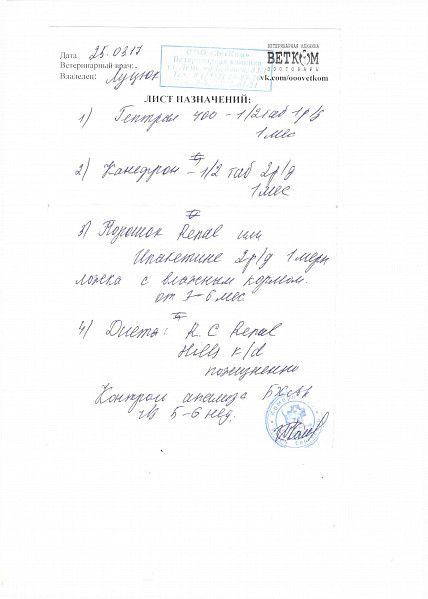 ВЕТЕРИНАРНАЯ КЛИНИКА
ВЕТКОМ
ЗООТОВАРЫ
vk.com/ooovetkom
Дата 25.03.17
Ветеринарный врач:
Владелец: Луцюк
ООО «ВетКом»
Ветеринарная клиника
ЛИСТ НАЗНАЧЕНИЙ:
1) Гептрал 400 – 1/2 таб 1р/д
1 мес
2) Канефрон – 1/2 таб 2р/д
1 мес
3) Порошок Renal или
Ипакетине 2р/д 1 мерн
ложка с влажным кормом.
от 3–6 мес
4) Диета: R.C Renal
Hills k/d
пожизненно
Контроль анализа БХ
5–6 нед.